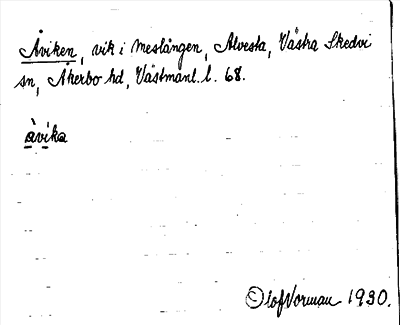 Åviken, vik i Meslången, Alvesta, Västra Skedvi
sn, Åkerbo hd, Västmanl. l. 68.
àvi̇ka
Olof Vorman 1930.